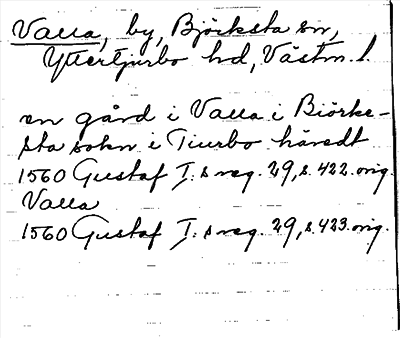 Valla, by, Björksta sn,
Yttertjurbo hd, Västm. l.
en gård i Valla i Biörke-
sta sokn i Tiurbo häredt
1560 Gustaf I:s reg. 29, s. 422. orig.
Valla
1560 Gustaf I:s reg. 29, s. 423. orig.